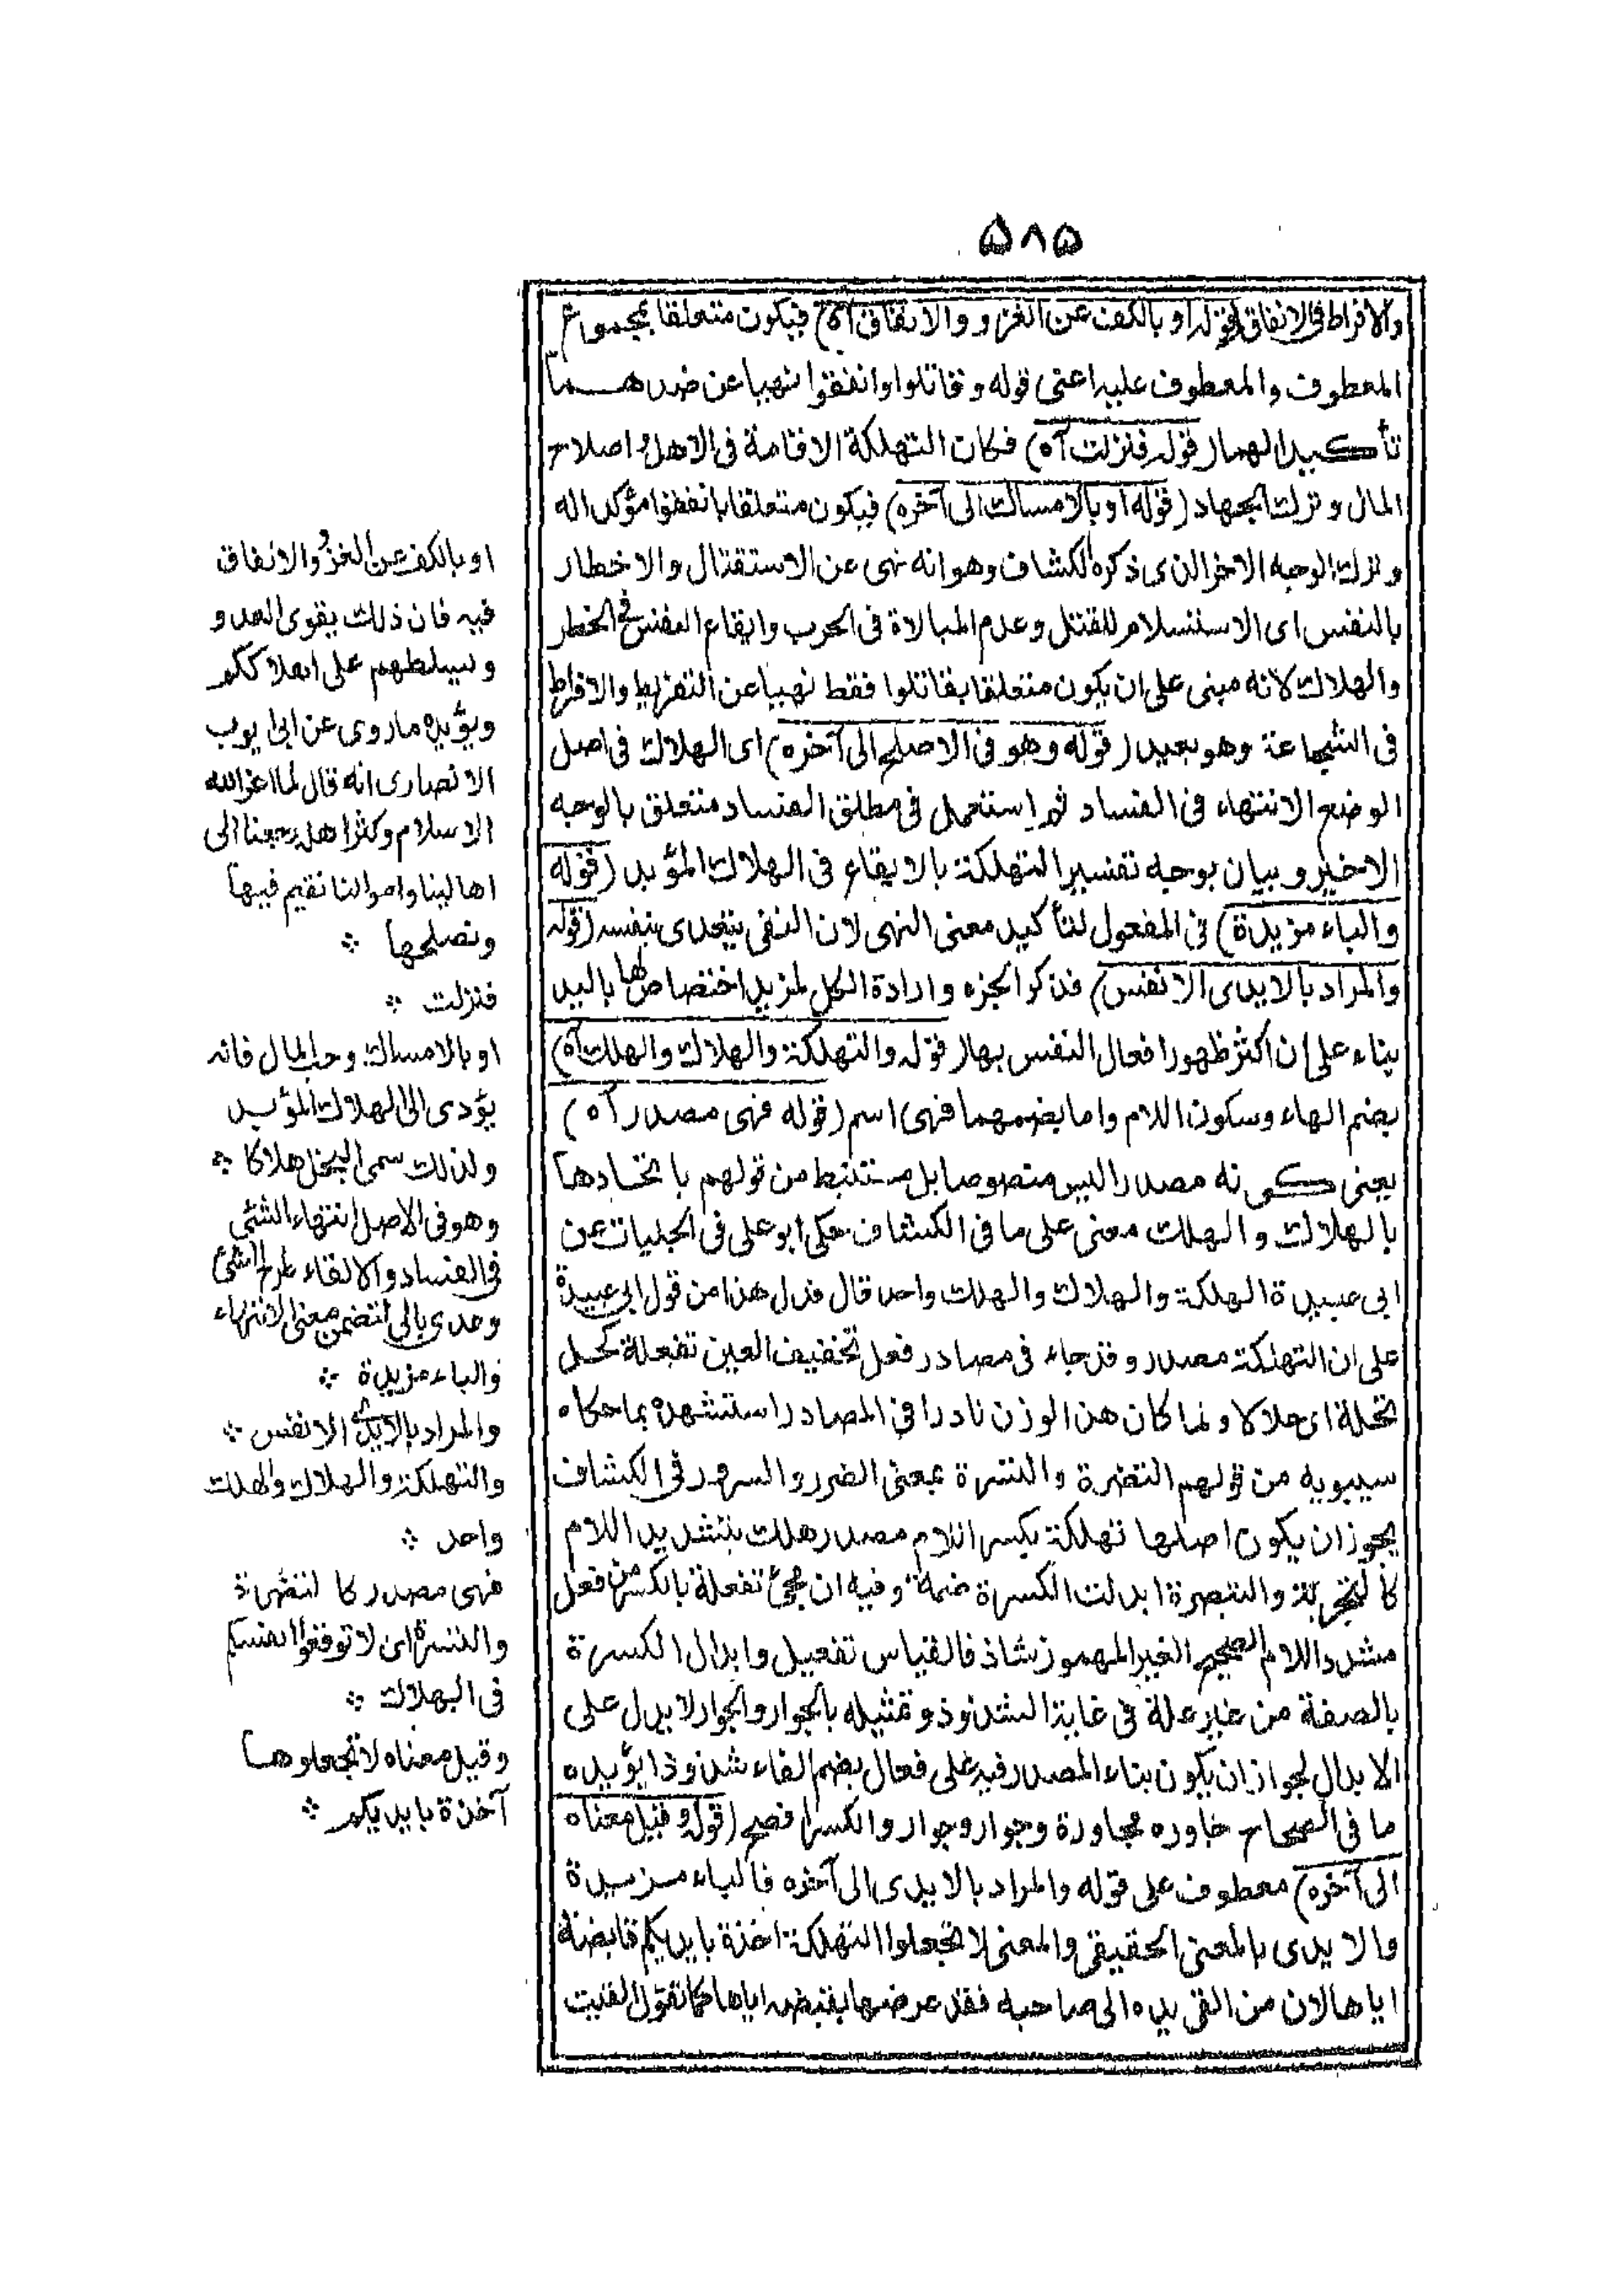 ٥٨٥
والافراط فى الانفاق (قوله او بالكف عن الغزو والانفاق آه) فيكون متعلقا بمجموع
المعطوف والمعطوف عليه اعنى قوله وقاتلوا وانفقوا نهيا عن ضدهما
تأكيدا لهما (قوله فنزلت آه) فكان التهلكة الاقامة فى الاهل واصلاح
المال وترك الجهاد (قوله او بالامساك الى آخره) فيكون متعلقا بانفقوا مؤكدا له
وترك الوجه الاخر الذى ذكره الكشاف وهو انه نهى عن الاستقتال والاخطار
بالنفس اى الاستسلام للقتل وعدم المبالاة فى الحرب وايقاع النفس فى الخطر
والهلاك لانه مبنى على ان يكون متعلقا بقاتلوا فقط نهيا عن التفريط والافراط
فى الشجاعة وهو بعيد (قوله وهو فى الاصل الى آخره) اى الهلاك فى اصل
الوضع الانتهاء فى الفساد ثم استعمل فى مطلق الفساد متعلق بالوجه
الاخير وبيان بوجه تفسير التهلكة بالايقاع فى الهلاك المؤبد (قوله
والباء مزيدة) فى المفعول لتأكيد معنى النهى لان النفى يتعدى بنفسه (قوله
والمراد بالايدى الانفس) فذكر الجزء وارادة الكل لمزيد اختصاص لها باليد
بناء على ان اكثر ظهور افعال النفس بها (قوله والتهلكة والهلاك والهلك آه)
بضم الهاء وسكون اللام واما بضمهما فهى اسم (قوله فهى مصدر آه)
يعنى كونه مصدرا ليس منصوصا بل مستنبط من قولهم با تحادها
بالهلاك والهلك معنى على ما فى الكشاف حكى ابو على فى الحلبيات عن
ابى عبيدة الهلكة والهلاك والهلك واحد قال فدل هذا من قول ابى عبيدة
على ان التهلكة مصدر وقد جاء فى مصادر فعل تخفيف العين تفعلة كحل
تحلة اى حلالا ولما كان هذا الوزن نادرا فى المصادر استشهده بما حكاه
سيبويه من قولهم التضرة والتسرة بمعنى الضرر والسرور فى الكشاف
يجوز ان يكون اصلها تهلكة بكسر اللام مصدر هلك بتشديد اللام
كالتجربة والتبصرة ابدلت الكسرة ضمة وفيه ان مجئ تفعلة بالكسر من فعل
مشدد اللام الصحيح الغير المهموز شاذ فالقياس تفعيل وابدال الكسرة
بالضمة من غير علة فى غاية الشذوذ وتمثيله بالجوار والجوار لا يدل على
الابدال لجواز ان يكون بناء المصدر فيه على فعال بضم الفاء شذوذا يؤيده
ما فى الصحاح جاوره مجاورة وجوار وجوار والكسر افصح (قوله وقيل معناه
الى آخره) معطوف على قوله والمراد بالايدى الى آخره فالباء مزيدة
والايدى بالمعنى الحقيقى والمعنى لا تجعلوا التهلكة اخذة بايديكم قابضة
اياها لان من القى يده الى صاحبه فقد عرضها لقبضه اياها كما تقول القيت
او بالكف عن الغزو والانفاق
فيه فان ذلك يقوى العدو
ويسلطهم على اهلاككم
ويؤيده ما روى عن ابى ايوب
الانصارى انه قال لما اعز الله
الاسلام وكثر اهله رجعنا الى
اهالينا واموالنا نقيم فيها
ونصلحها ۞
فنزلت ۞
او بالامساك وحب المال فانه
يؤدى الى الهلاك المؤبد
ولذلك سمى البخل هلاكا ۞
وهو فى الاصل انتهاء الشئ
فى الفساد والالقاء طرح الشئ
وعدى بالى لتضمن معنى الانتهاء
والباء مزيدة ۞
والمراد بالايدى الانفس ۞
والتهلكة والهلاك والهلك
واحد ۞
فهى مصدر كا لتضرة
والتسرة اى لا توقعوا انفسكم
فى الهلاك ۞
وقيل معناه لا تجعلوها
آخذة بايديكم ۞